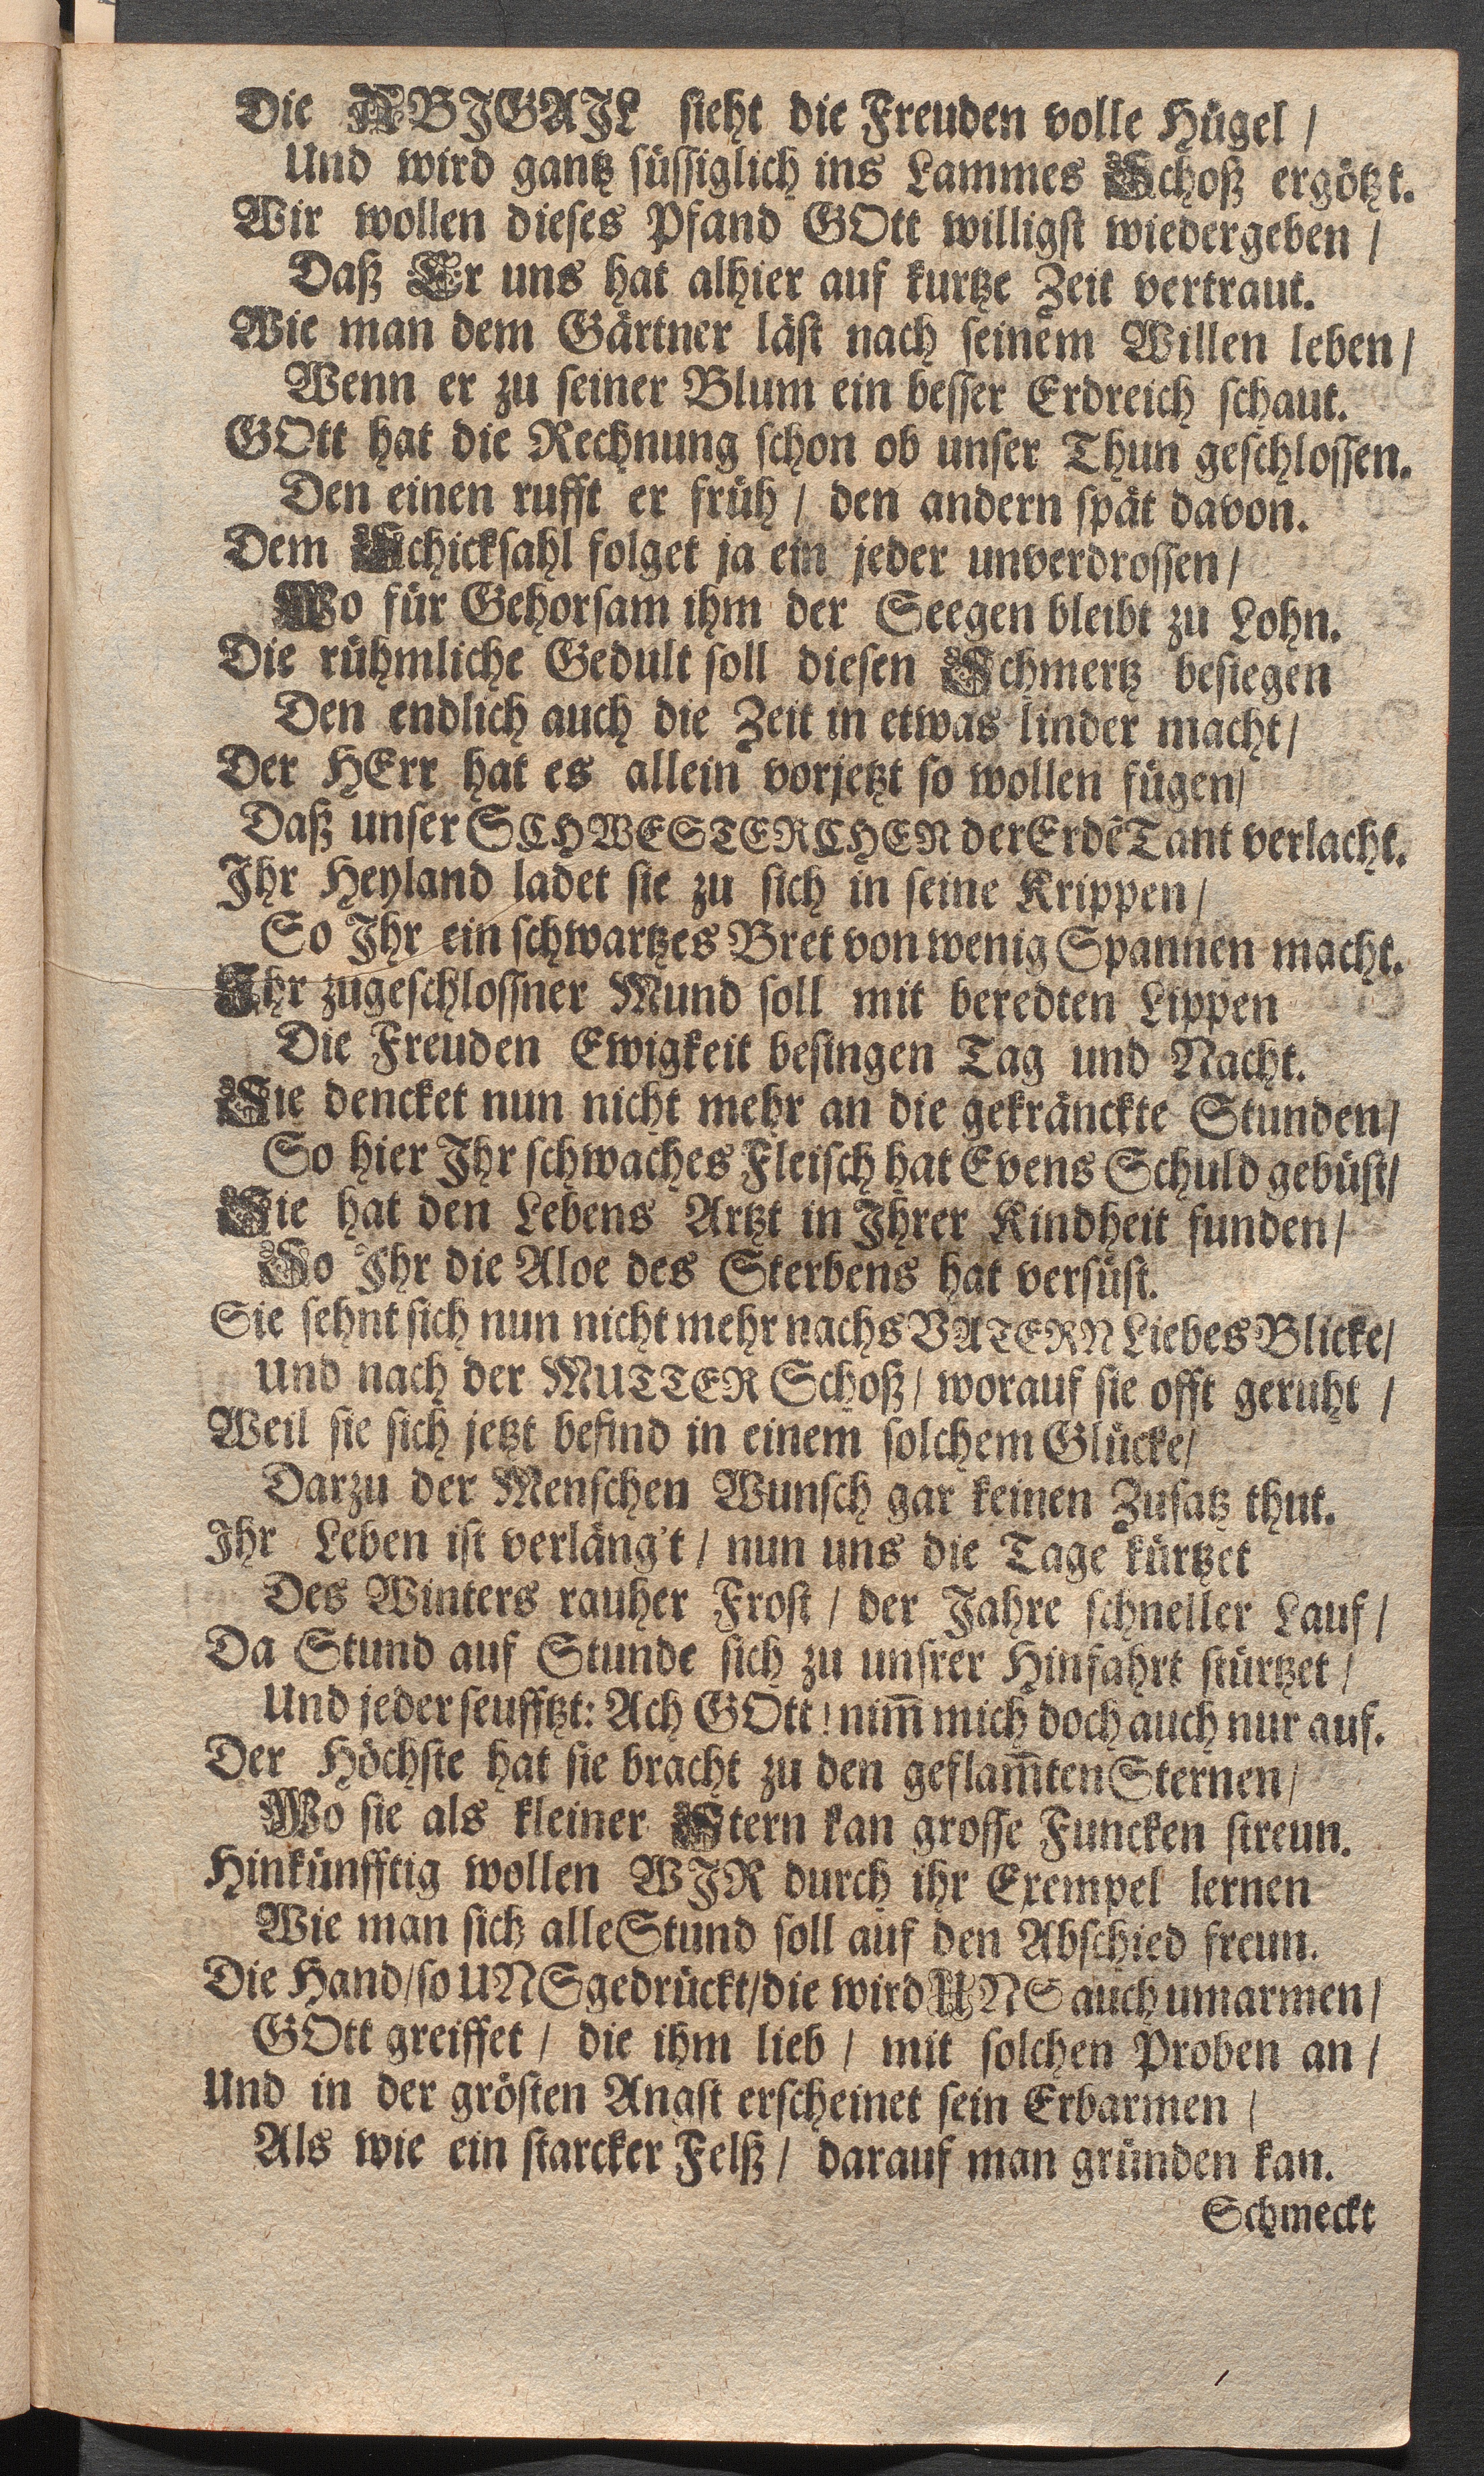 Die ABIGAIL sieht die Freuden volle Hügel /
Und wird gantz süssiglich ins Lammes Schoß ergötzt.
Wir wollen dieses Pfand GOtt willigst wiedergeben /
Daß Er uns hat alhier auf kurtze Zeit vertraut.
Wie man dem Gärtner läst nach seinem Willen leben /
Wenn er zu seiner Blum ein besser Erdreich schaut.
GOtt hat die Rechnung schon ob unser Thun geschlossen.
Den einen rufft er früh / den andern spät davon.
Dem Schicksahl folget ja ein jeder unverdrossen /
Wo für Gehorsam ihm der Seegen bleibt zu Lohn.
Die rühmliche Gedult soll diesen Schmertz besiegen
Den endlich auch die Zeit in etwas linder macht /
Der HErr hat es allein vorjetzt so wollen fügen /
Daß unser SCHWESTERCHEN der Erdē Tant verlacht.
Ihr Heyland ladet sie zu sich in seine Krippen /
So Ihr ein schwartzes Bret von wenig Spannen macht.
Ihr zugeschlossner Mund soll mit beredten Lippen
Die Freuden Ewigkeit besingen Tag und Nacht.
Sie dencket nun nicht mehr an die gekränckte Stunden /
So hier Ihr schwaches Fleisch hat Evens Schuld gebüst /
Sie hat den Lebens Artzt in Ihrer Kindheit funden /
So Ihr die Aloe des Sterbens hat versüst.
Sie sehnt sich nun nicht mehr nachs VATERN Liebes Blicke /
Und nach der MUTTER Schoß / worauf sie offt geruht /
Weil sie sich jetzt befind in einem solchem Glücke /
Darzu der Menschen Wunsch gar keinen Zusatz thut.
Ihr Leben ist verläng't / nun uns die Tage kürtzet
Des Winters rauher Frost / der Jahre schneller Lauf /
Da Stund auf Stunde sich zu unsrer Hinfahrt stürtzet /
Und jeder seufftzt: Ach GOtt! nim̄ mich doch auch nur auf.
Der Höchste hat sie bracht zu den geflam̄ten Sternen /
Wo sie als kleiner Stern kan grosse Funcken streun.
Hinkünfftig wollen WIR durch ihr Exempel lernen
Wie man sich alle Stund soll auf den Abschied freun.
Die Hand / so UNS gedrückt / die wird UNS auch umarmen /
GOtt greiffet / die ihm lieb / mit solchen Proben an /
Und in der grösten Angst erscheinet sein Erbarmen /
Als wie ein starcker Felß / darauf man gründen kan.
Schmeckt